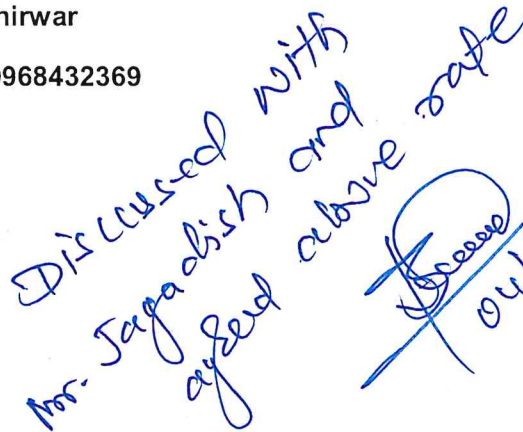 hirwar
9968432369
Discussed with
Mr. Jagadish and
agreed above rate
04/